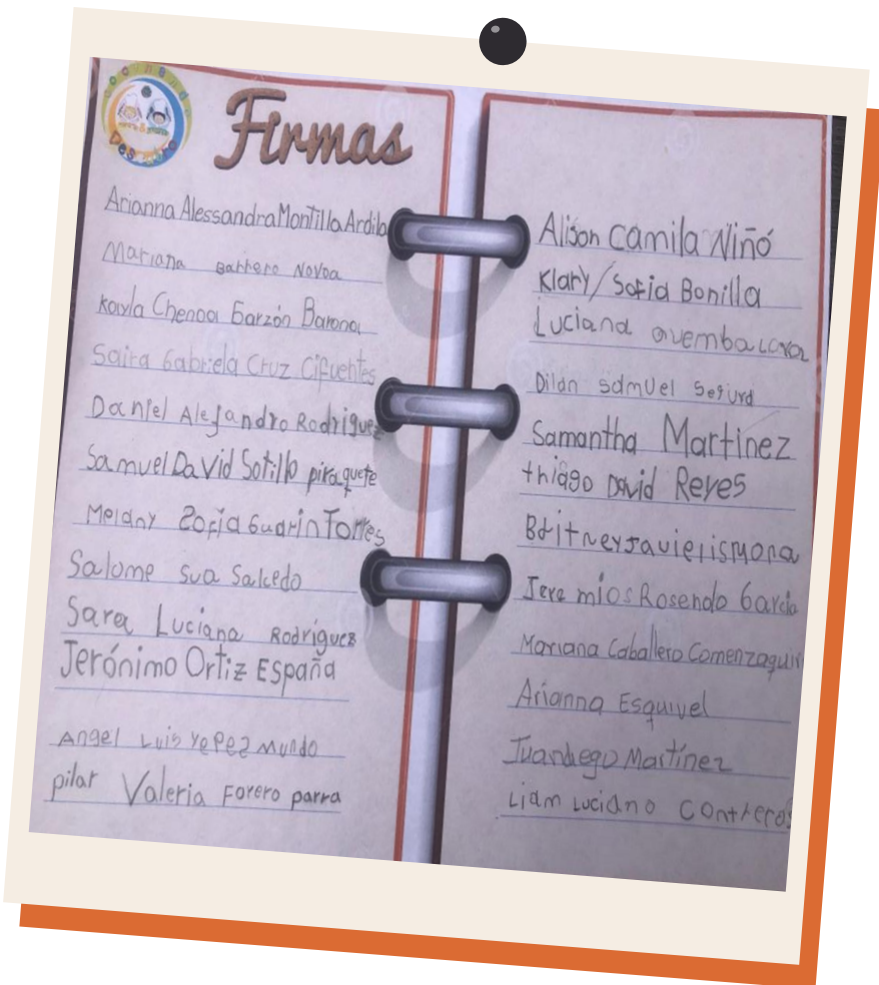 Firmas
Arianna Alessandra Montilla Ardila
Mariana Barrero Novoa
Kayla Chenoa Garzón Barona
Saira Gabriela Cruz Cifuentes
Daniel Alejandro Rodriguez
Samuel David Sotillo piraquete
Melany Zofia Guarin Torres
Salome Sua Salcedo
Sara Luciana Rodríguez
Jerónimo Ortiz España
Angel Luis Yepez Mundo
pilar Valeria Forero parra
Alison Camila Niñó
Klary/Sofia Bonilla
Luciana
Dilan samuel Segura
Samantha Martinez
thiago David Reyes
Britney
Rosendo Garcia
Mariana Caballero
Arianna Esquivel
Juandiego Martínez
Liam Luciano Contreras